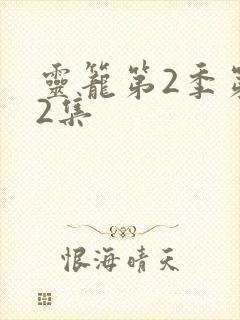 靈籠第2季第
2集
恨海晴天